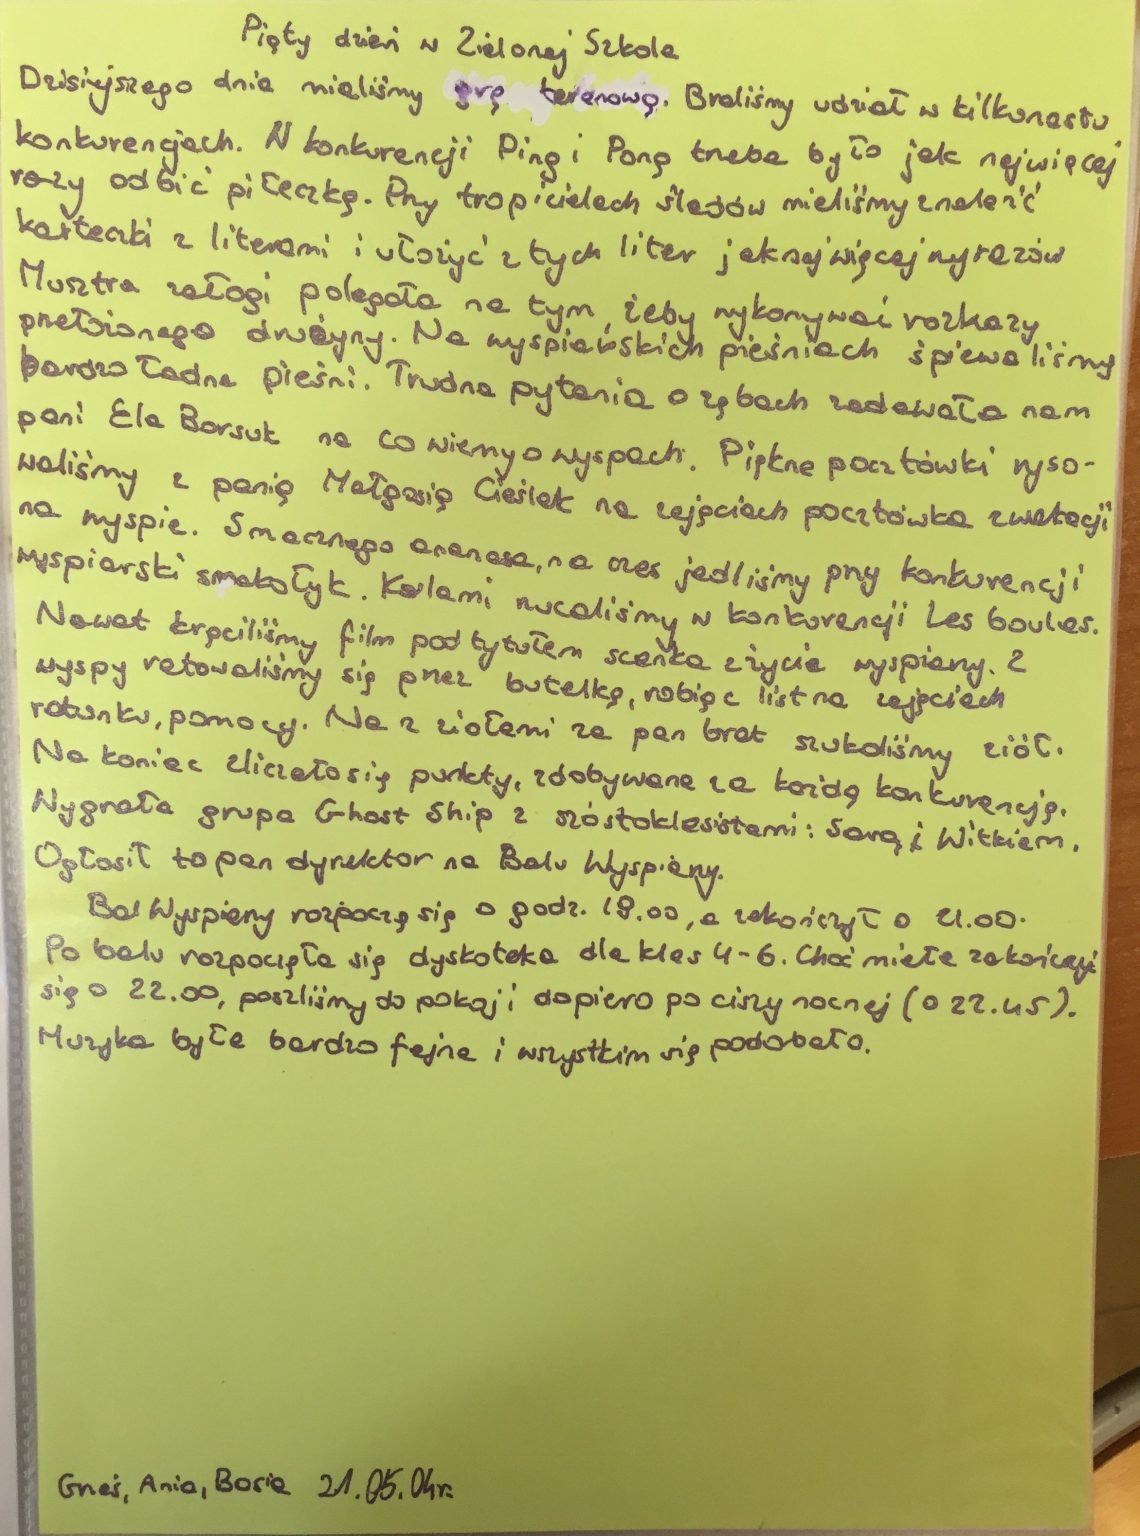 Piąty dzień w Zielonej Szkole
Dzisiejszego dnia mieliśmy grę terenową. Braliśmy udział w kilkunastu
konkurencjach. W konkurencji Ping i Pong trzeba było jak najwięcej
razy odbić piłeczkę. Przy tropicielach śladów mieliśmy znaleźć
karteczki z literami i ułożyć z tych liter jak najwięcej wyrazów
Musztra załogi polegała na tym, żeby wykonywać rozkazy
przełożonego drużyny. Na wyspiarskich pieśniach śpiewaliśmy
bardzo ładne pieśni. Trudne pytania o zębach zadawała nam
pani Ela Borsuk na co wiemy o wyspach. Piękne pocztówki ryso-
waliśmy z panią Małgosią Cieślak na zajęciach pocztówka z wakacji
na wyspie. Smacznego ananasa, na czas jedliśmy przy konkurencji
wyspiarski smakołyk. Kulami rzucaliśmy w konkurencji Les boules.
Nawet kręciliśmy film pod tytułem scenka z życia wyspiarzy. Z
wyspy ratowaliśmy się przez butelkę, robiąc list na zajęciach
ratunku, pomocy. Na z ziołami za pan brat szukaliśmy ziół.
Na koniec zliczało się punkty, zdobywane za każdą konkurencję.
Wygrała grupa Ghost Ship z szóstoklasistami: Sarą i Witkiem.
Ogłosił to pan dyrektor na Balu Wyspiarzy.
Bal Wyspiarzy rozpoczą się o godz. 19.00, a zakończył o 21.00.
Po balu rozpoczęła się dyskoteka dla klas 4-6. Choć miała zakończyć
się o 22.00, poszliśmy do pokoj i dopiero po ciszy nocnej (o 22.45).
Muzyka była bardzo fajna i wszystkim się podobało.
Grześ, Ania, Basia 21.05.04r.